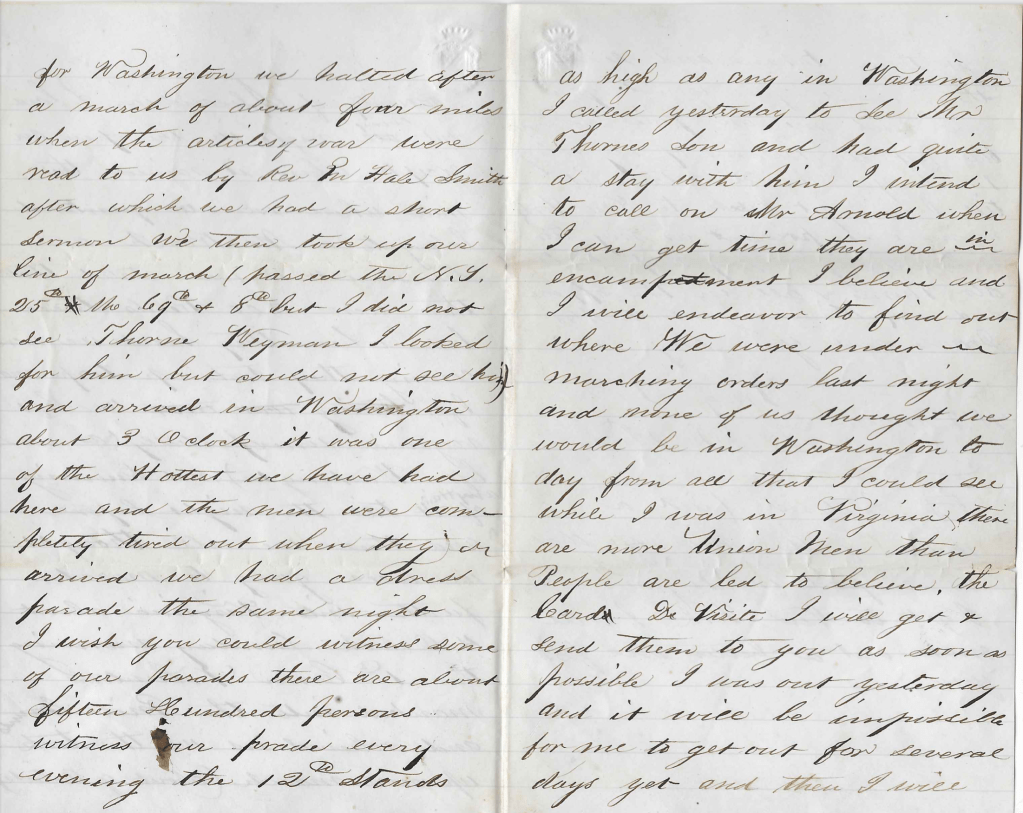 for Washington we halted after
a march of about four miles
when the articles of war were
read to us by Rev Hale Smith
after which we had a short
sermon We then took up our
line of march (passed the N.Y.
25th the 69th & 8th but I did not
see Thorne Weyman I looked
for him but could not see him)
and arrived in Washington
about 3 O clock it was one
of the Hottest we have had
here and the men were com-
pletety tired out when they
arrived we had a dress
parade the same night
I wish you could witness some
of our parades there are about
fifteen Hundred persons
witness our prade every
evening the 12th Stands
as high as any in Washington
I called yesterday to see Mr
Thornes Son and had quite
a stay with him I intend
to call on Mr Arnold when
I can get time they are in
encampment I believe and
I will endeavor to find out
where We were under
marching orders last night
and none of us thought we
would be in Washington to
day from all that I could see
while I was in Virginia there
are more Union Men than
People are led to believe, the
Card De Visite I will get &
send them to you as soon as
possible I was out yesterday
and it will be impossible
for me to get out for several
days yet and then I will